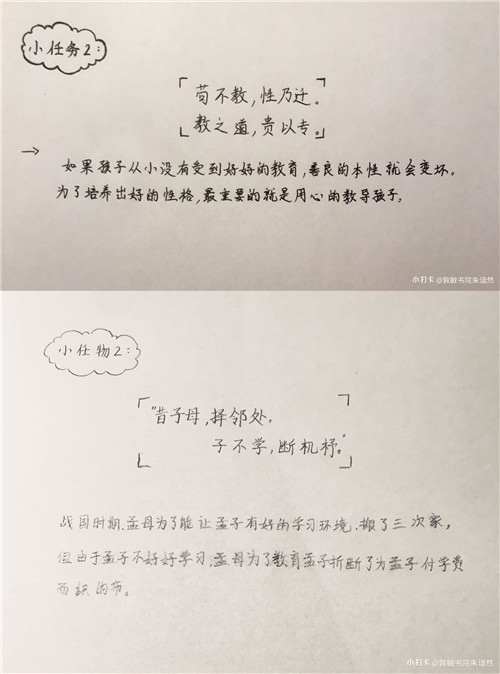 小任务2:
苟不教,性乃迁。
教之道,贵以专。
如果孩子从小没有受到好好的教育,善良的本性就会变坏。
为了培养出好的性格,最重要的就是用心的教导孩子。
小打卡@敦敏书院朱谊然
小任物2:
"昔子母,择邻处。
子不学,断机杼。"
战国时期,孟母为了能让孟子有好的学习环境,搬了三次家,
但由于孟子不好好学习,孟母为了教育孟子折断了为孟子付学费
而织的布。
小打卡@敦敏书院朱谊然